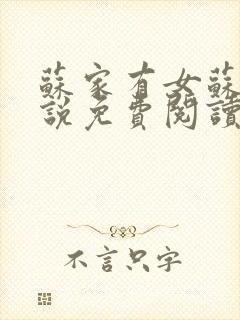 蘇家有女蘇
說免費閱讀
不言只字